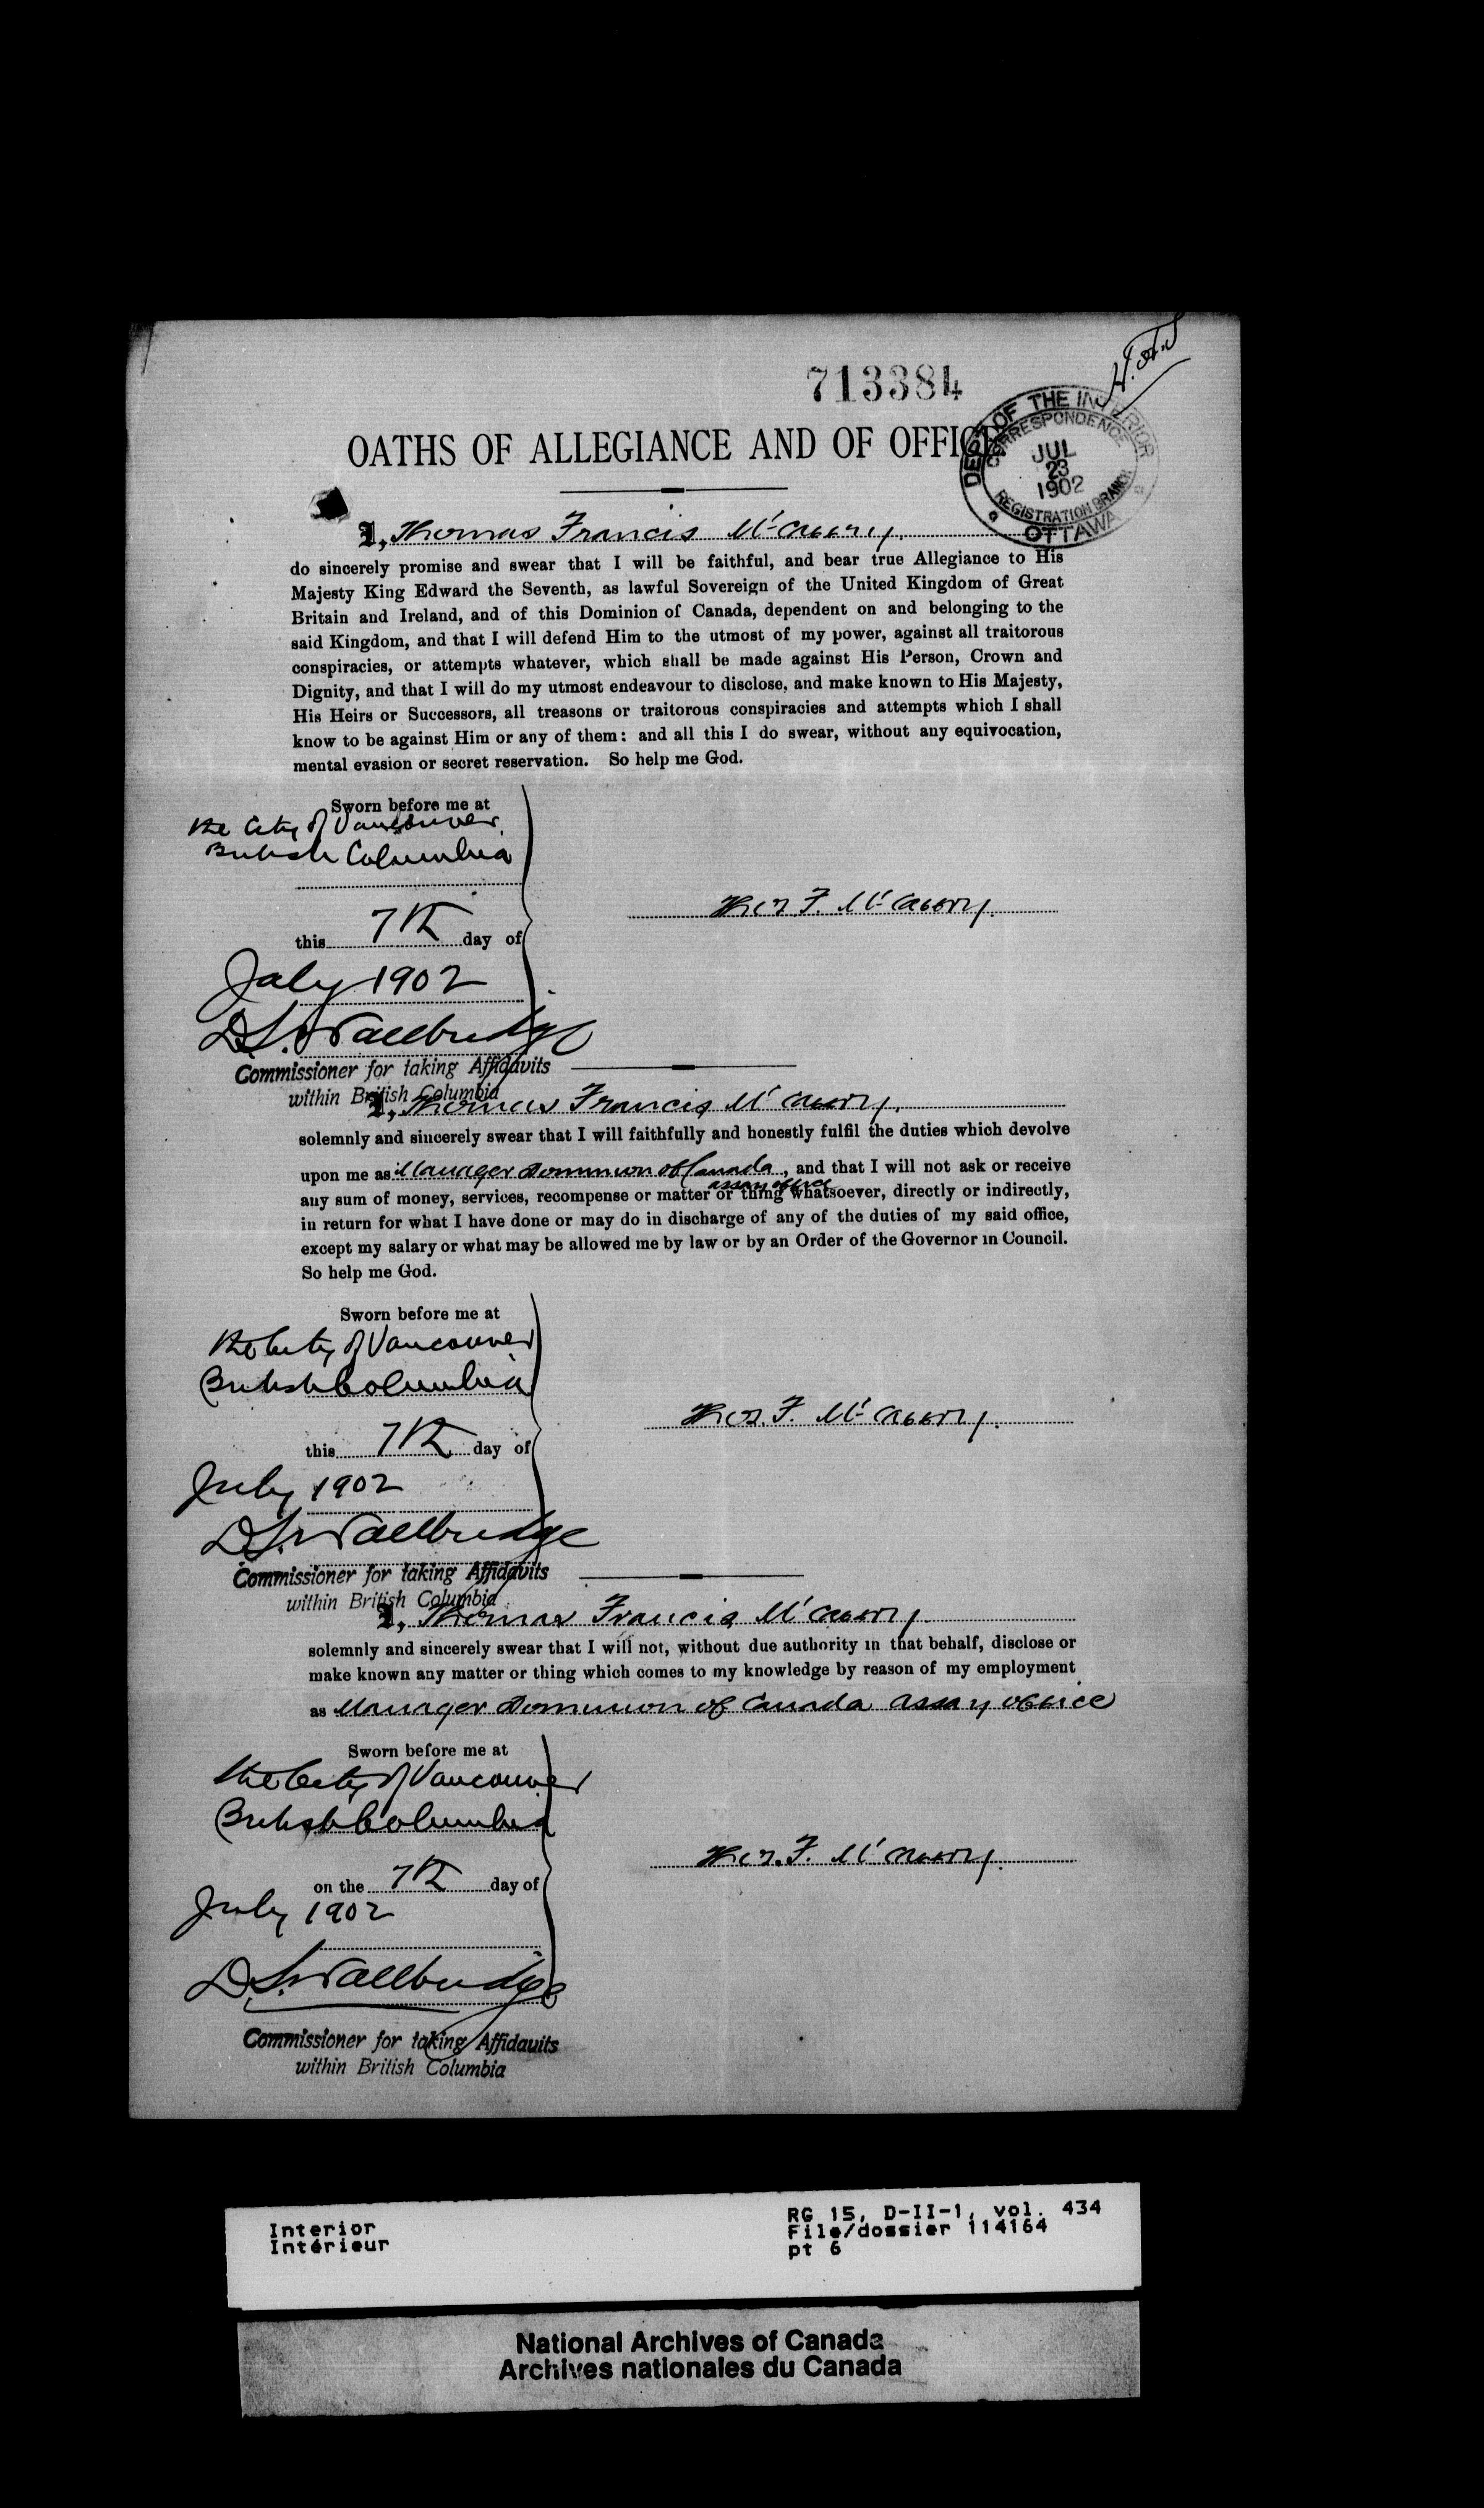 713384
DEPT OF THE INTERIOR
CORRESPONDENCE
JUL
23
1902
REGISTRATION BRANCH
OTTAWA
OATHS OF ALLEGIANCE AND OF OFFICE
I, Thomas Francis
do sincerely promise and swear that I will be faithful, and bear true Allegiance to His
Majesty King Edward the Seventh, as lawful Sovereign of the United Kingdom of Great
Britain and Ireland, and of this Dominion of Canada, dependent on and belonging to the
said Kingdom, and that I will defend Him to the utmost of my power, against all traitorous
conspiracies, or attempts whatever, which shall be made against His Person, Crown and
Dignity, and that I will do my utmost endeavour to disclose, and make known to His Majesty,
His Heirs or Successors, all treasons or traitorous conspiracies and attempts which I shall
know to be against Him or any of them: and all this I do swear, without any equivocation,
mental evasion or secret reservation. So help me God.
Sworn before me at
the City of Vancouver
British Columbia
this 7th day of
July 1902
Thos. F.
D.S. Wallbridge
Commissioner for taking Affidavits
within British Columbia
I, Thomas Francis
solemnly and sincerely swear that I will faithfully and honestly fulfil the duties which devolve
upon me as Manager Dominion of Canada, and that I will not ask or receive
assay office
any sum of money, services, recompense or matter or thing whatsoever, directly or indirectly,
in return for what I have done or may do in discharge of any of the duties of my said office,
except my salary or what may be allowed me by law or by an Order of the Governor in Council.
So help me God.
Sworn before me at
the City of Vancouver
British Columbia
this 7th day of
July 1902
Thos. F.
D.S. Wallbridge
Commissioner for taking Affidavits
within British Columbia
I, Thomas Francis
solemnly and sincerely swear that I will not, without due authority in that behalf, disclose or
make known any matter or thing which comes to my knowledge by reason of my employment
as Manager Dominion of Canada assay office
Sworn before me at
the City of Vancouver
British Columbia
on the 7th day of
July 1902
Thos. F.
D.S. Wallbridge
Commissioner for taking Affidavits
within British Columbia
Interior
Intérieur
RG 15, D-II-1, vol. 434
File/dossier 114164
pt 6
National Archives of Canada
Archives nationales du Canada